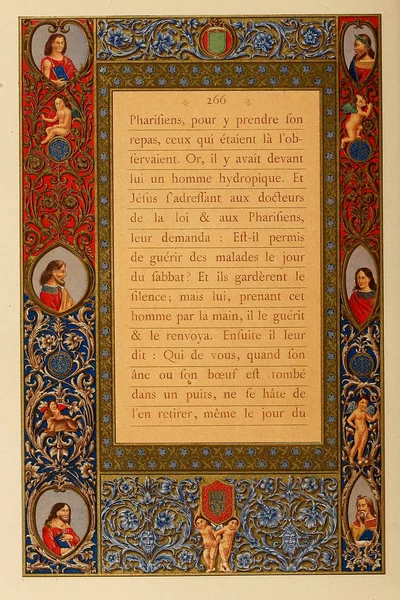 266
Phariſiens, pour y prendre ſon
repas, ceux qui étaient là l'ob-
ſervaient. Or, il y avait devant
lui un homme hydropique. Et
Jéſus ſ'adreſſant aux docteurs
de la loi & aux Phariſiens,
leur demanda : Eſt-il permis
de guérir des malades le jour
du ſabbat? Et ils gardèrent le
ſilence; mais lui, prenant cet
homme par la main, il le guérit
& le renvoya. Enſuite il leur
dit : Qui de vous, quand ſon
âne ou ſon bœuf eſt tombé
dans un puits, ne ſe hâte de
l'en retirer, même le jour du